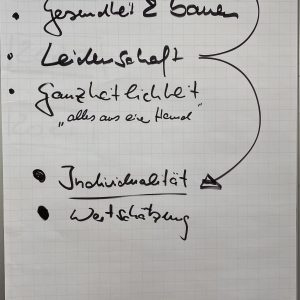 • Gesundheit & bauen
• Leidenschaft
• Ganzheitlichkeit
„alles aus einer Hand"
• Individualität
• Wertschätzung